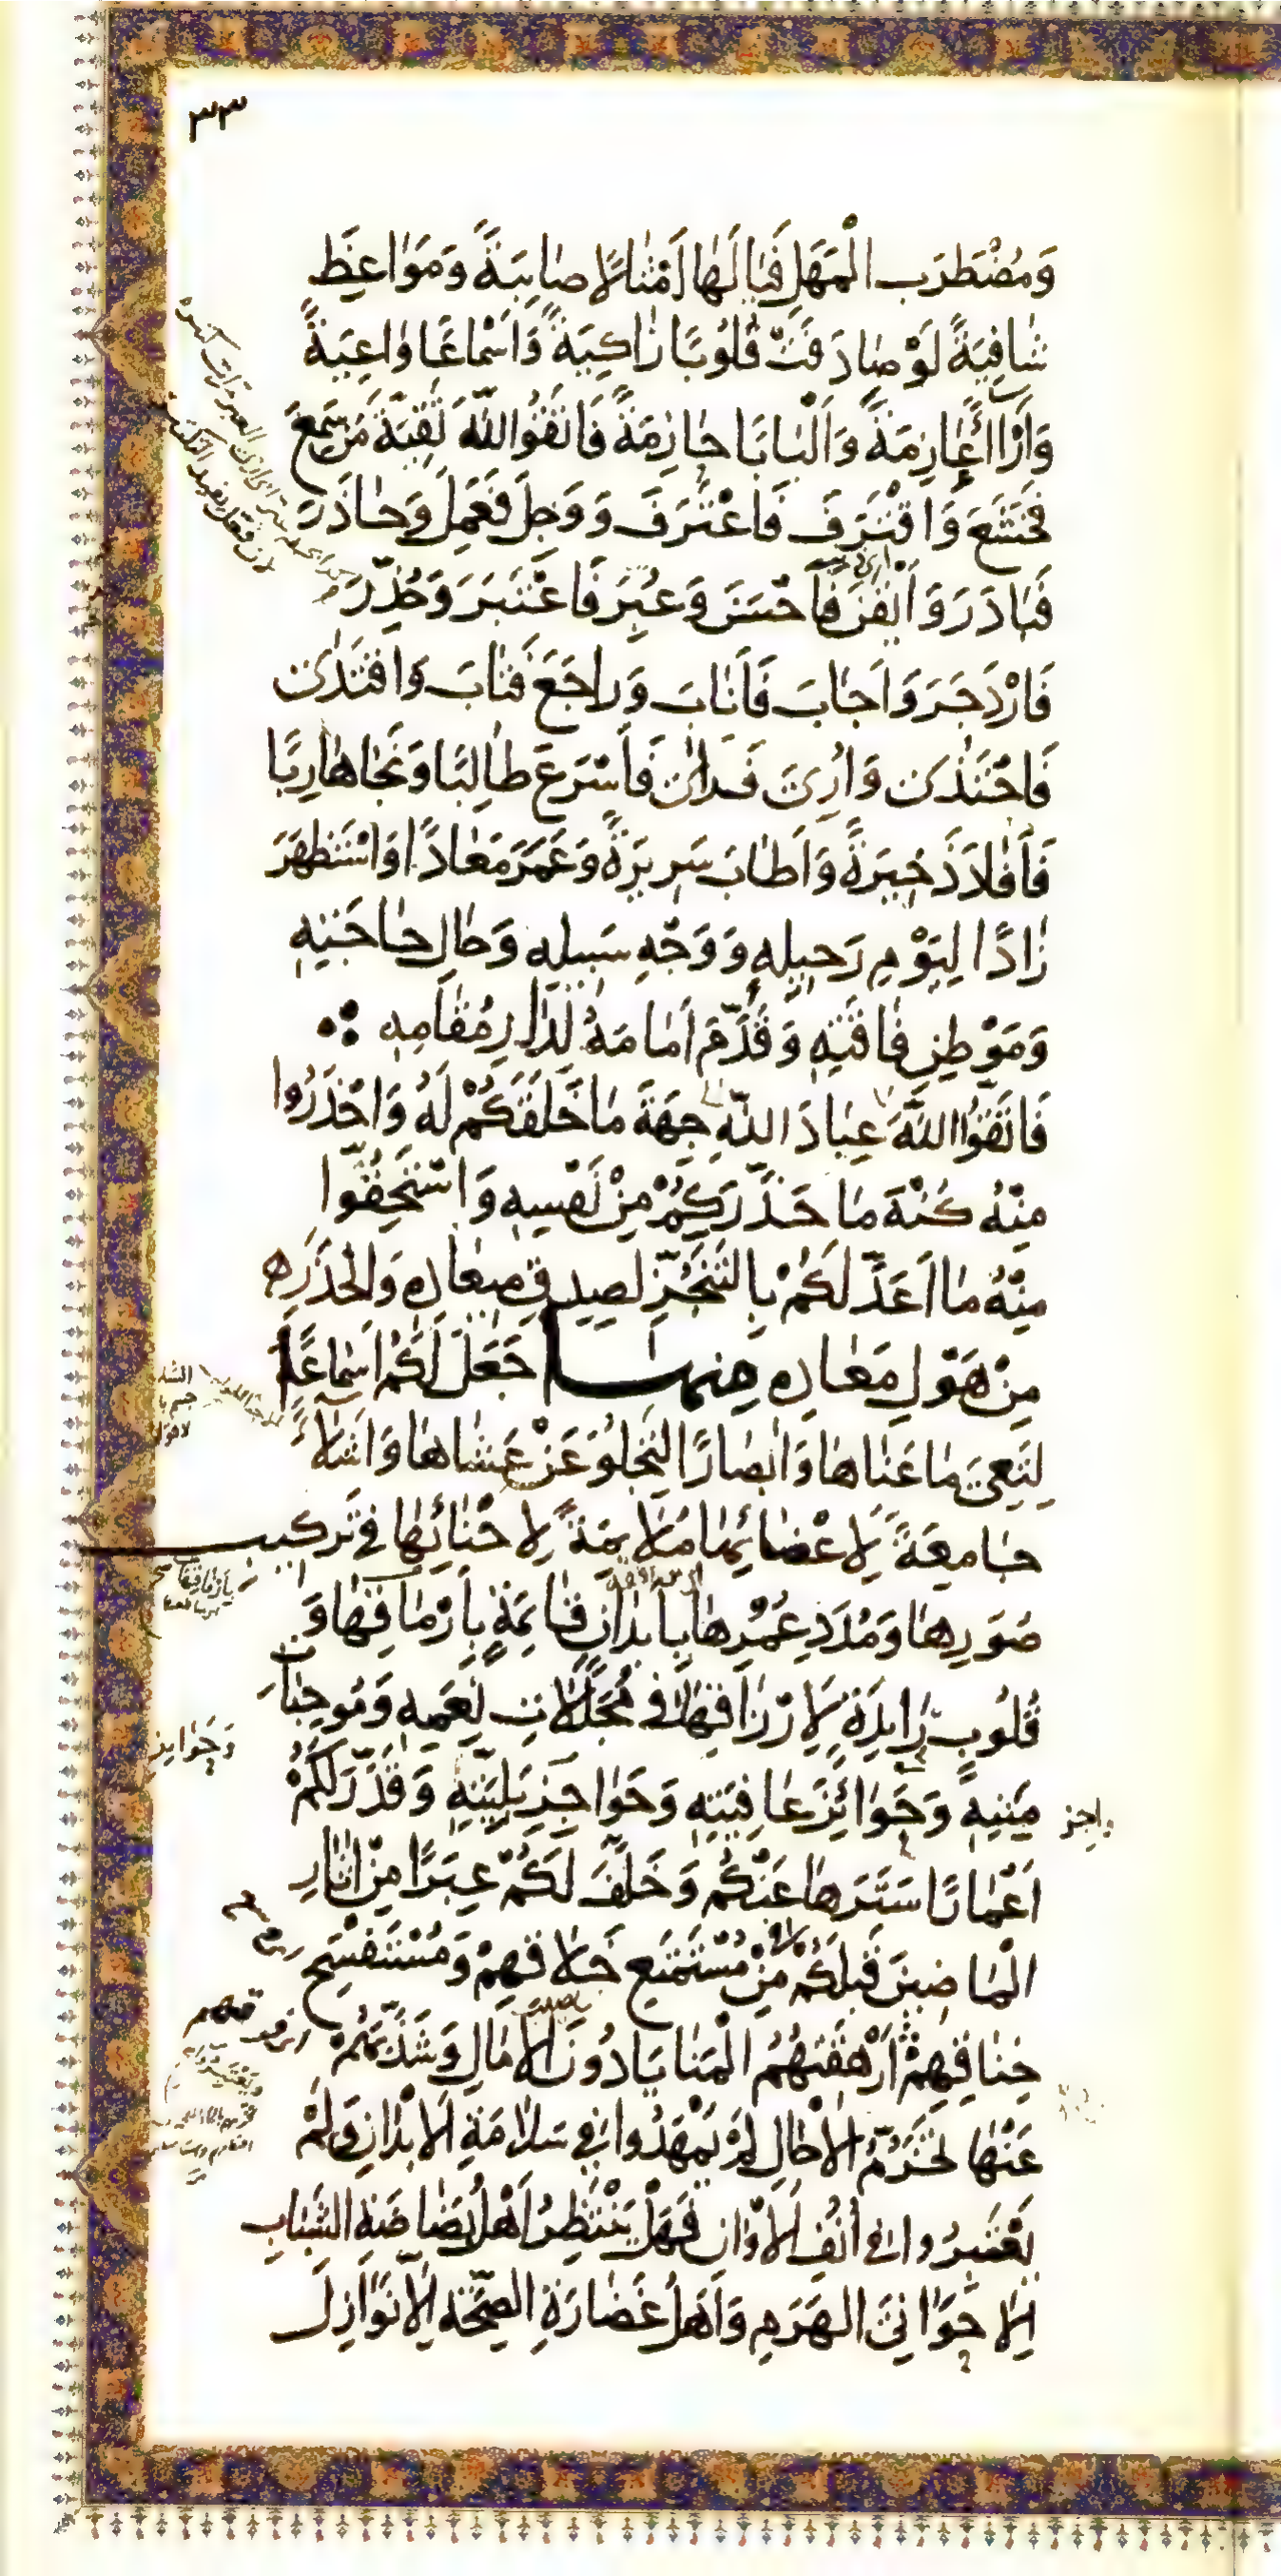 ٣٣
وَمُضْطَرَبِ الْمَهَلِ فَيَا لَهَا أَمْثَالًا صَائِبَةً وَمَوَاعِظَ
شَافِيَةً لَوْ صَادَفَتْ قُلُوبًا زَاكِيَةً وَأَسْمَاعًا وَاعِيَةً
وَآرَاءً عَازِمَةً وَأَلْبَابًا حَازِمَةً فَاتَّقُوا اللّٰهَ تَقِيَّةَ مَنْ سَمِعَ
فَخَشَعَ وَاقْتَرَفَ فَاعْتَرَفَ وَوَجِلَ فَعَمِلَ وَحَاذَرَ
فَبَادَرَ وَأَيْقَنَ فَأَحْسَنَ وَعُبِّرَ فَاعْتَبَرَ وَحُذِّرَ
فَازْدَجَرَ وَأَجَابَ فَأَنَابَ وَرَاجَعَ فَتَابَ وَاقْتَدَى
فَاحْتَذَى وَأُرِيَ فَرَأَى فَأَسْرَعَ طَالِبًا وَنَجَا هَارِبًا
فَأَفَادَ ذَخِيرَةً وَأَطَابَ سَرِيرَةً وَعَمَرَ مَعَادًا وَاسْتَظْهَرَ
زَادًا لِيَوْمِ رَحِيلِهِ وَوَجْهِ سَبِيلِهِ وَحَالِ حَاجَتِهِ
وَمَوْطِنِ فَاقَتِهِ وَقَدَّمَ أَمَامَهُ لِدَارِ مُقَامِهِ
فَاتَّقُوا اللّٰهَ عِبَادَ اللّٰهِ جِهَةَ مَا خَلَقَكُمْ لَهُ وَاحْذَرُوا
مِنْهُ كُنْهَ مَا حَذَّرَكُمْ مِنْ نَفْسِهِ وَاسْتَحِقُّوا
مِنْهُ مَا أَعَدَّ لَكُمْ بِالتَّنَجُّزِ لِصِدْقِ مِيعَادِهِ وَالْحَذَرِ
مِنْ هَوْلِ مَعَادِهِ مِنْهَا جَعَلَ لَكُمْ أَسْمَاعًا
لِتَعِيَ مَا عَنَاهَا وَأَبْصَارًا لِتَجْلُوَ عَنْ عَشَاهَا وَأَشْلَاءً
جَامِعَةً لِأَعْضَائِهَا مُلَائِمَةً لِأَحْنَائِهَا فِي تَرْكِيبِ
صُوَرِهَا وَمُدَدِ عُمُرِهَا بِأَبْدَانٍ قَائِمَةٍ بِأَرْمَاقِهَا وَ
قُلُوبٍ رَائِدَةٍ لِأَرْزَاقِهَا فِي مُجَلِّلَاتِ نِعَمِهِ وَمُوجِبَاتِ
مِنَنِهِ وَجَوَائِزِ عَافِيَتِهِ وَحَوَاجِزِ بَلِيَّتِهِ وَقَدَّرَ لَكُمْ
أَعْمَارًا سَتَرَهَا عَنْكُمْ وَخَلَّفَ لَكُمْ عِبَرًا مِنْ آثَارِ
الْمَاضِينَ قَبْلَكُمْ مِنْ مُسْتَمْتَعِ خَلَاقِهِمْ وَمُسْتَفْسَحِ
خِنَاقِهِمْ أَرْهَقَتْهُمُ الْمَنَايَا دُونَ الْآمَالِ وَشَذَّبَهُمْ
عَنْهَا تَخَرُّمُ الْآجَالِ لَمْ يَمْهَدُوا فِي سَلَامَةِ الْأَبْدَانِ وَلَمْ
يَعْتَبِرُوا فِي أُنُفِ الْأَوَانِ فَهَلْ يَنْتَظِرُ أَهْلُ بَضَاضَةِ الشَّبَابِ
إِلَّا حَوَانِيَ الْهَرَمِ وَأَهْلُ غَضَارَةِ الصِّحَّةِ إِلَّا نَوَازِلَ